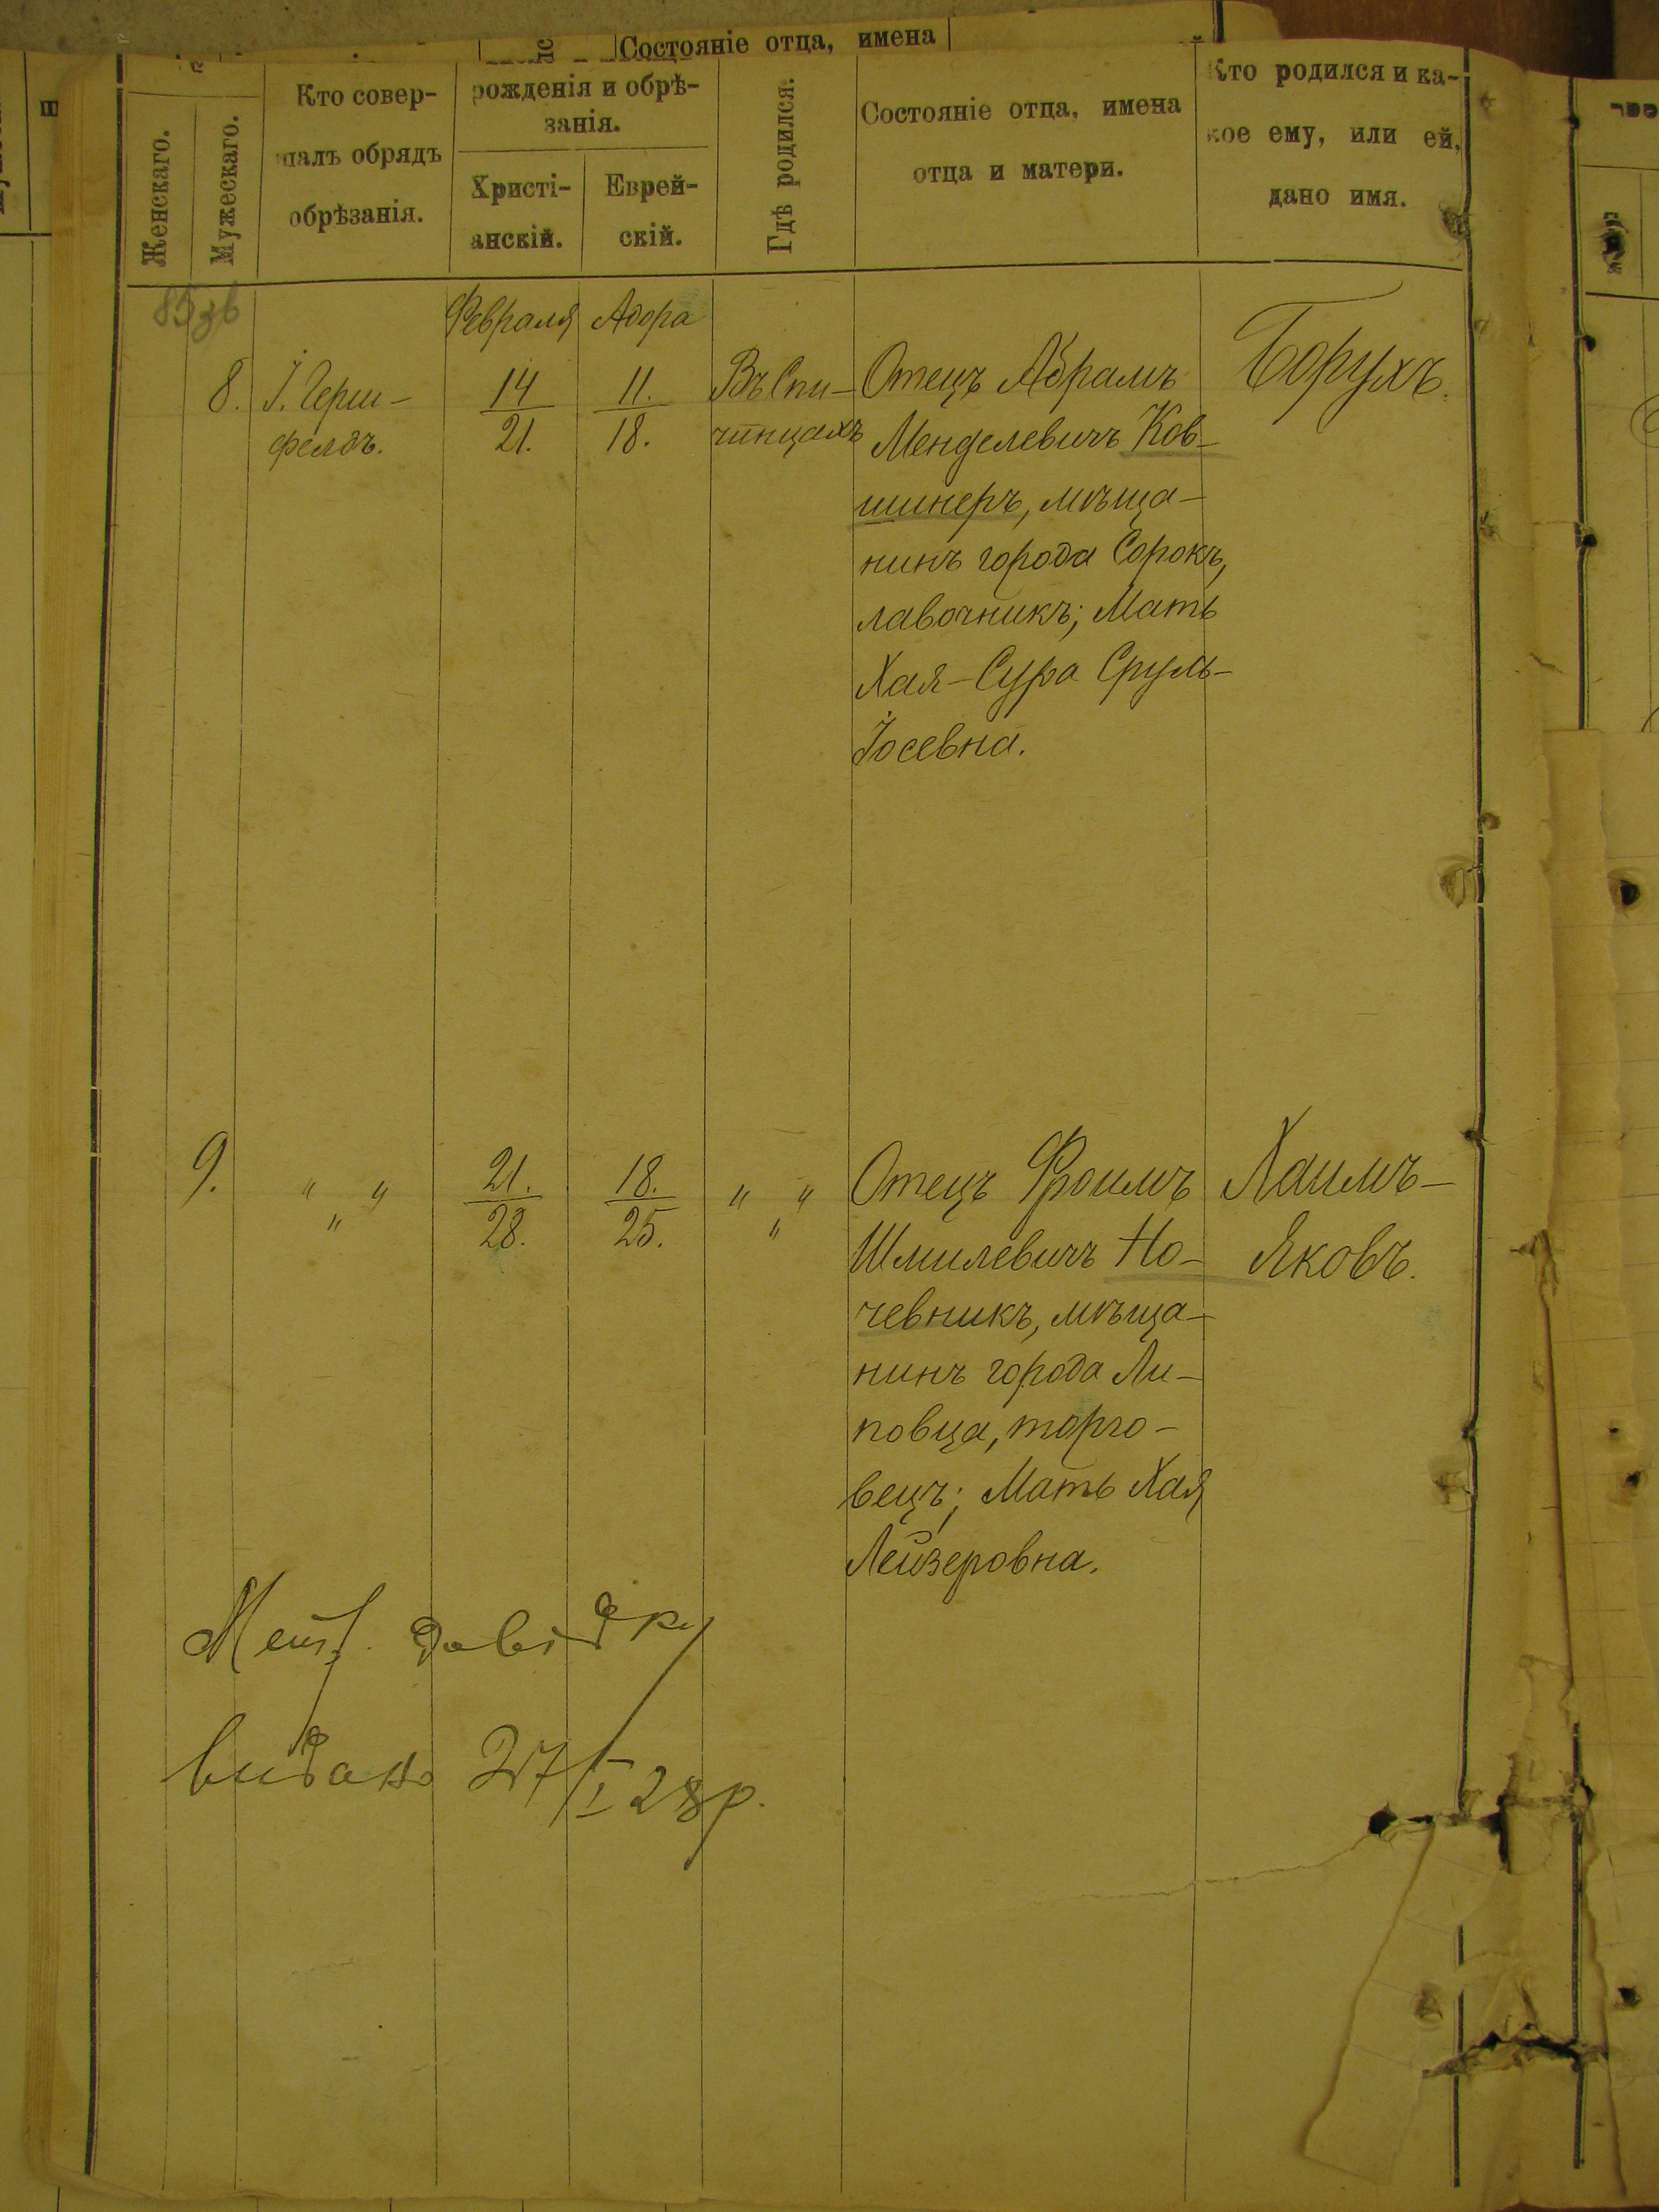 Состояніе отца, имена
Женскаго.
Мужескаго.
Кто совер-
шалъ обрядъ
обрѣзанія.
рожденія и обрѣ-
занія.
Христі-
анскій.
Еврей-
скій.
Гдѣ родился.
Состояніе отца, имена
отца и матери.
Кто родился и ка-
кое ему, или ей,
дано имя.
85зв
Февраля Адора
8. І. Герш-
фелдъ.
14
21.
11.
18.
Въ Спи-
чинцахъ
Отецъ Абрамъ
Менделевичъ Ков-
шинеръ, мѣща-
нинъ города Сорокъ,
лавочникъ; Мать
Хая-Сура Сруль-
Іосевна.
Борухъ.
9. " " "
21.
28.
18.
25.
" " "
Отецъ Фроимъ
Шмилевичъ Но-
чевникъ, мѣща-
нинъ города Ли-
повца, торго-
вецъ; Мать Хая
Лейзеровна.
Хаимъ-
Яковъ.
довідку
видано 27/I 28р.